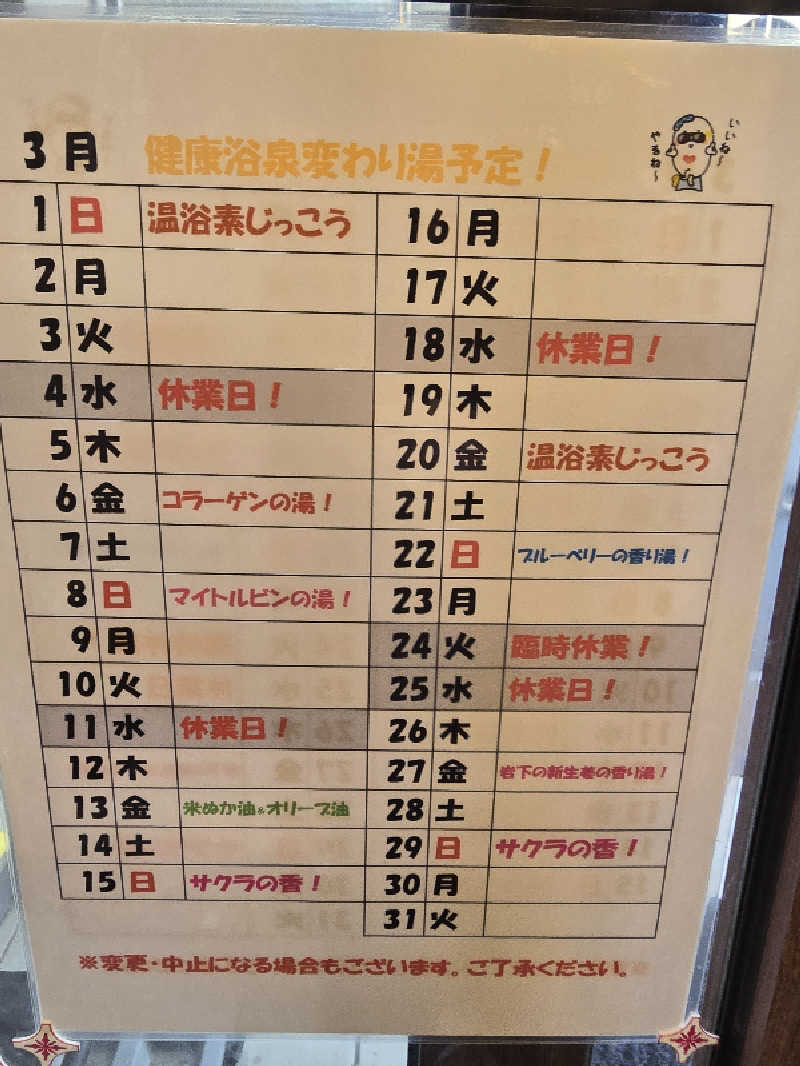 3月 健康浴泉変わり湯予定！
いいね〜
やるね〜
1 日 温浴素じっこう
2 月
3 火
4 水 休業日！
5 木
6 金 コラーゲンの湯！
7 土
8 日 マイトルビンの湯！
9 月
10 火
11 水 休業日！
12 木
13 金 米ぬか油&オリーブ油
14 土
15 日 サクラの香！
16 月
17 火
18 水 休業日！
19 木
20 金 温浴素じっこう
21 土
22 日 ブルーベリーの香り湯！
23 月
24 火 臨時休業！
25 水 休業日！
26 木
27 金 岩下の新生姜の香り湯！
28 土
29 日 サクラの香！
30 月
31 火
※変更・中止になる場合もございます。ご了承ください。